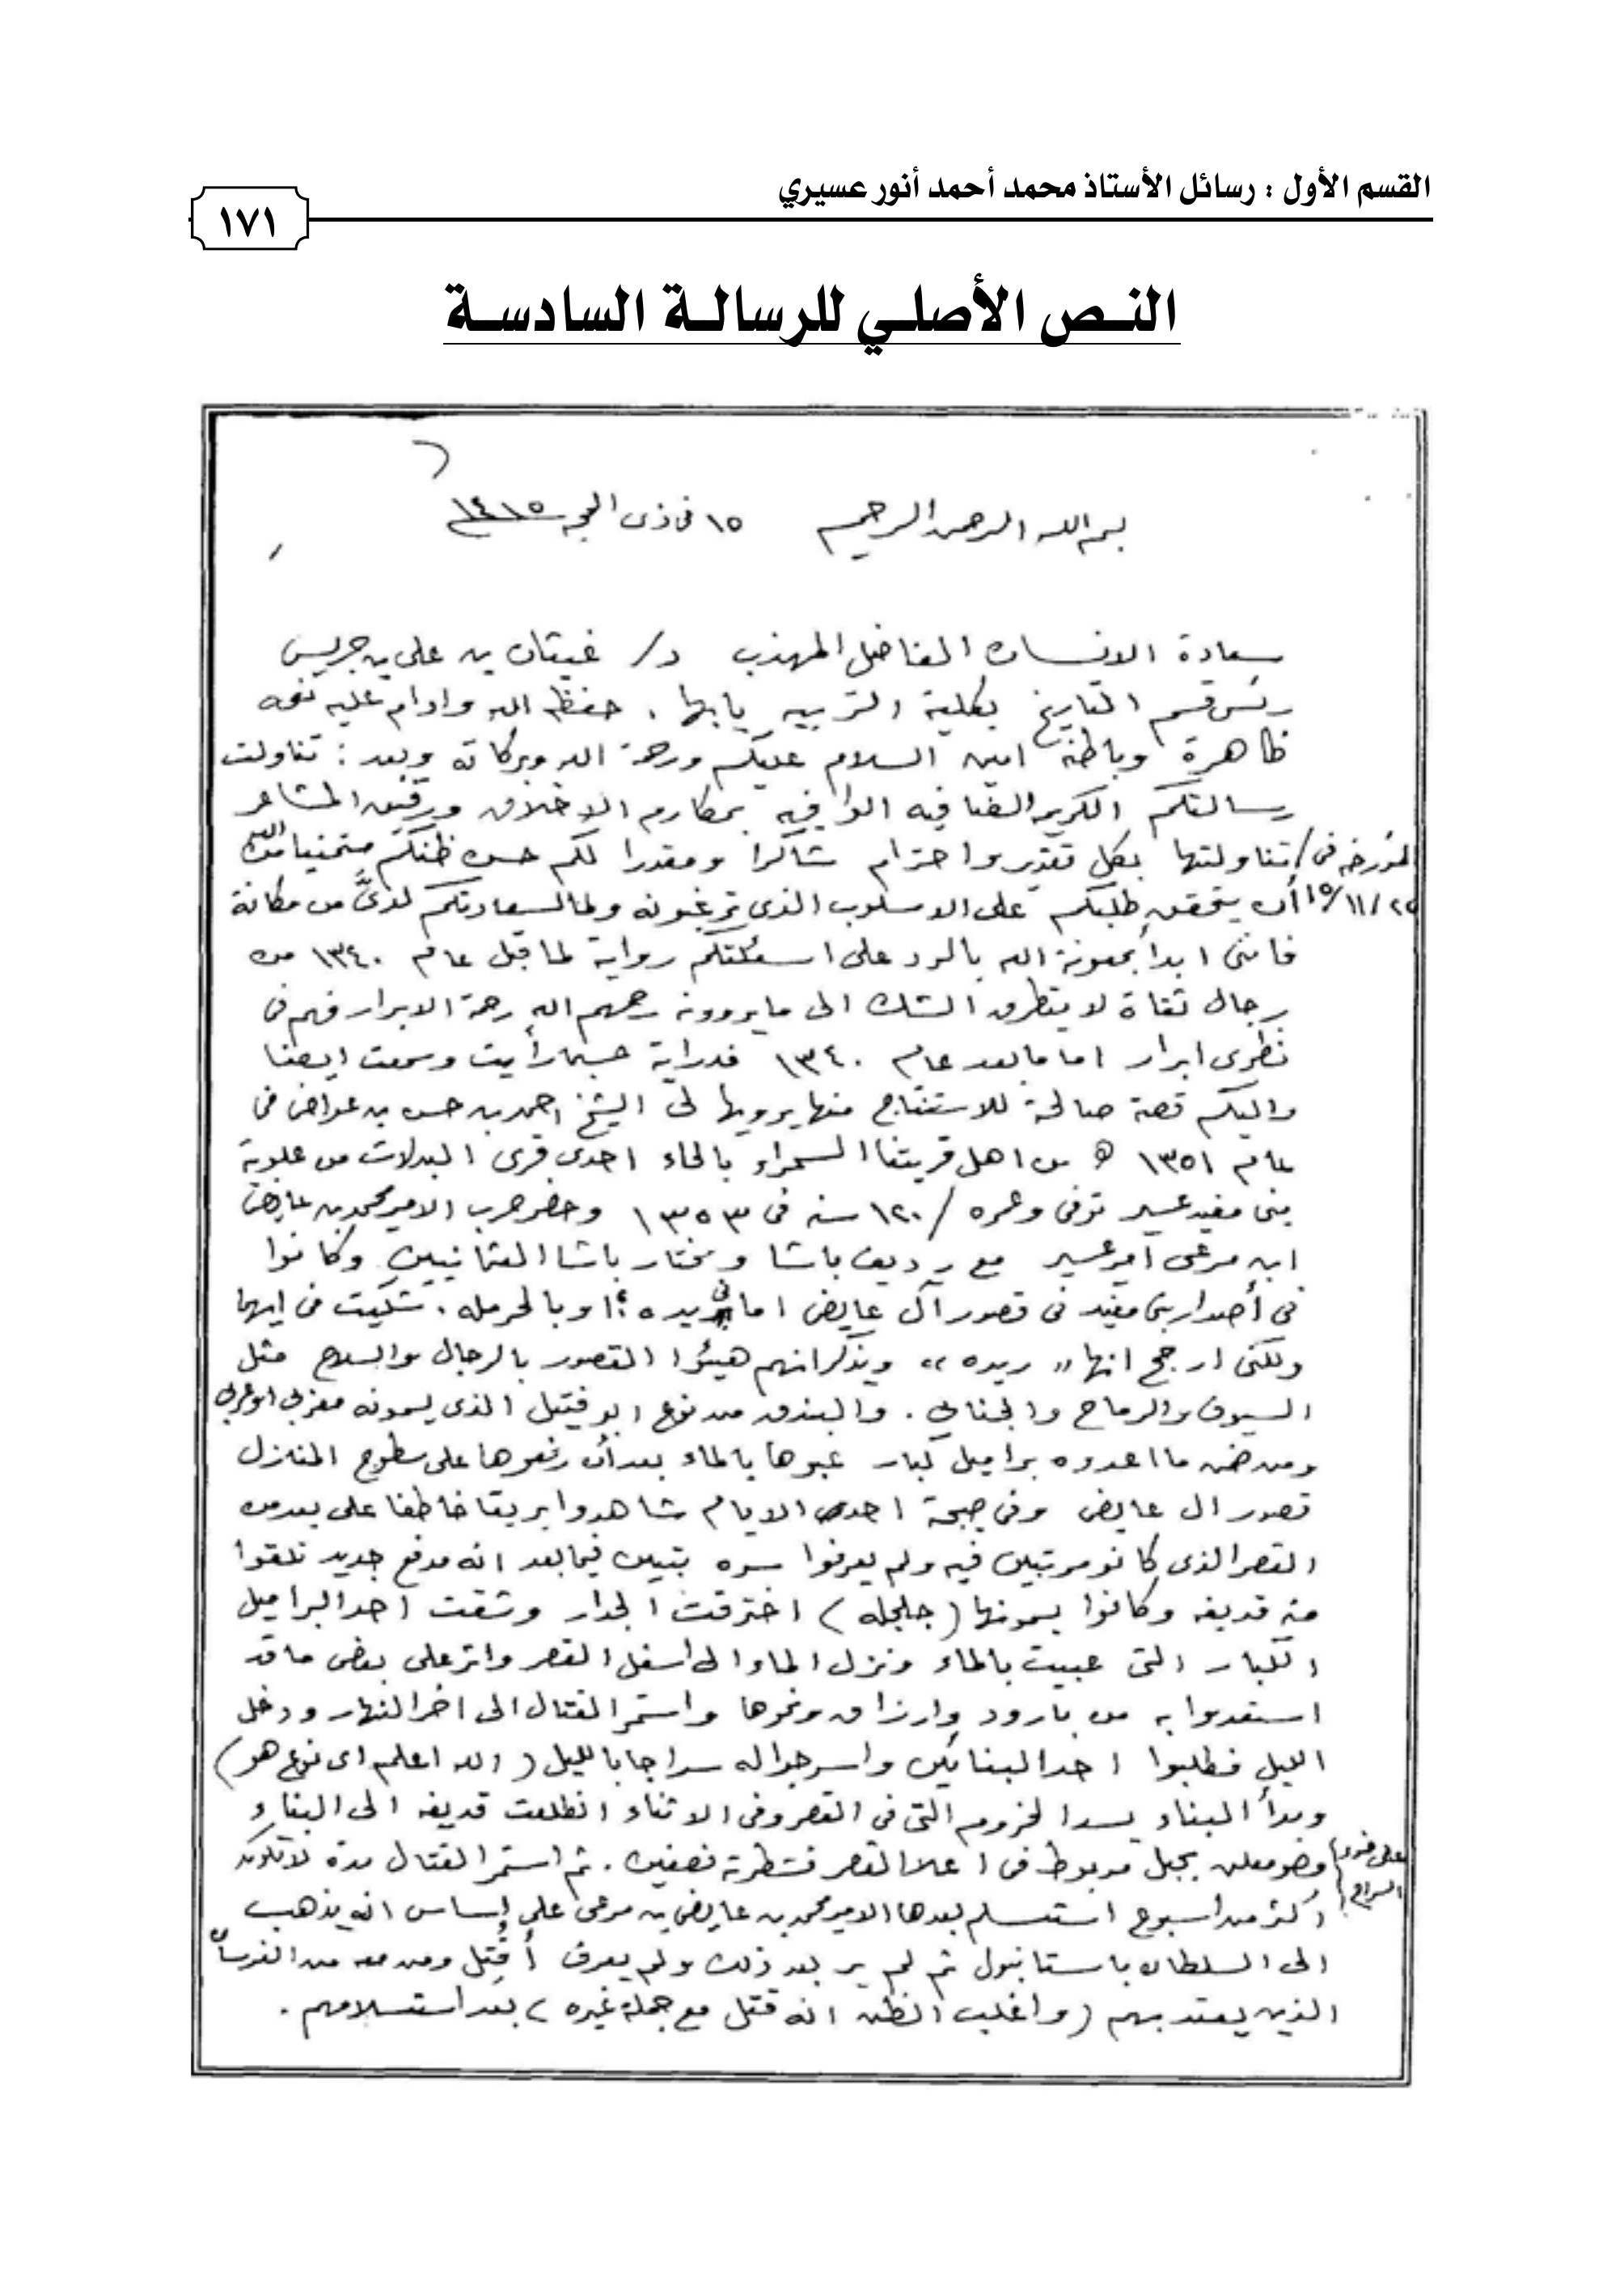 القسم الأول : رسائل الأستاذ محمد أحمد أنور عسيري
١٧١
النص الأصلي للرسالة السادسة
بسم الله الرحمن الرحيم ١٥ في ذى الحجه ١٤١٥
سعادة الانسان الفاضل المهذب د/ غيثان بن علي بن جريس
رئس قسم التاريخ بكلية التربيه بابها . حفظه الله وادام عليه نعمه
ظاهرة وباطنة امين السلام عليكم ورحمة الله وبركاته وبعد : تناولت
رسالتكم الكريمه الضافيه الوافيه بمكارم الاخلاق ورقيق المشاعر
المؤرخه في / تناولتها بكل تقدير واحترام شاكرا ومقدرا لكم حسن ظنكم متمنيا من الله
أن يتحقق طلبكم على الاسلوب الذى ترغبونه ولما لسعادتكم لدىّ من مكانة
فانني ابدأ بمعونة الله بالرد على اسئلتكم رواية لما قبل عام ١٣٤٠ من
رجال ثقاة لا يتطرق الشك الى ما يروونه رحمهم الله رحمة الابرار فهم في
نظرى ابرار اما ما بعد عام ١٣٤٠ فدراية حسبما رأيت وسمعت ايضا
واليكم قصة صالحة للاستنتاج منها يرويها لي الشيخ احمد بن حسن بن عواض في
عام ١٣٥١ هـ من اهل قريتنا السمراء بالماء احدى قرى البدلات من علوية
بنى مغيد عسير توفى وعمره / ١٢٠ سنه في ١٣٥٣ وحضر حرب الامير محمد بن عايض
ابن مرعى امير عسير مع رديف باشا ومختار باشا العثمانيين وكانوا
في أصدار بنى مغيد في قصور آل عايض اما في ريده ؟ او بالحرمله . شكيت في ايهما
ولكنى ارجح انها " ريده " ويذكر انهم هيئوا القصور بالرجال والسلاح مثل
السيوف والرماح والجنابي . والبندق من نوع ابو فتيل الذى يسمونه مغربي او عربي
ومن ضمن ما اعدوه براميل كبار عبوها بالماء بعد أن رفعوها على سطوح المنازل
قصور ال عايض وفي صبحة احدى الايام شاهدوا بريقا خاطفا على بعد من
القصر الذى كانو مرتبين فيه ولم يعرفوا سره بتبين فيما بعد انه مدفع جديد تلقوا
منه قذيفه وكانوا يسمونها ( جلجله ) اخترقت الجدار وشقت احد البراميل
الكبار التى عبيت بالماء ونزل الماء الى اسفل القصر واثر على بعض ما قد
استعدوا به من بارود وارزاق ونحوها واستمر القتال الى اخر النهار ودخل
الليل فطلبوا احد البنائين واسرجوا له سراجا بالليل ( الله اعلم اى نوع هو )
وبدأ البناء يسد الخروم التى في القصر وفي الاثناء انطلقت قذيفه الى البناء
على ضوء السراج
وهو معلق بحبل مربوط في اعلا القصر فشطرته نصفين . ثم استمر القتال مدة لا تكون
اكثر من اسبوع استسلم بعدها الامير محمد بن عايض بن مرعى على اساس انه يذهب
الى السلطان باستانبول ثم لم ير بعد ذلك ولم يعرف أقتل ومن معه من الفرسان
الذين يعتد بهم ( واغلب الظن انه قتل مع جملة غيره ) بعد استسلامهم .